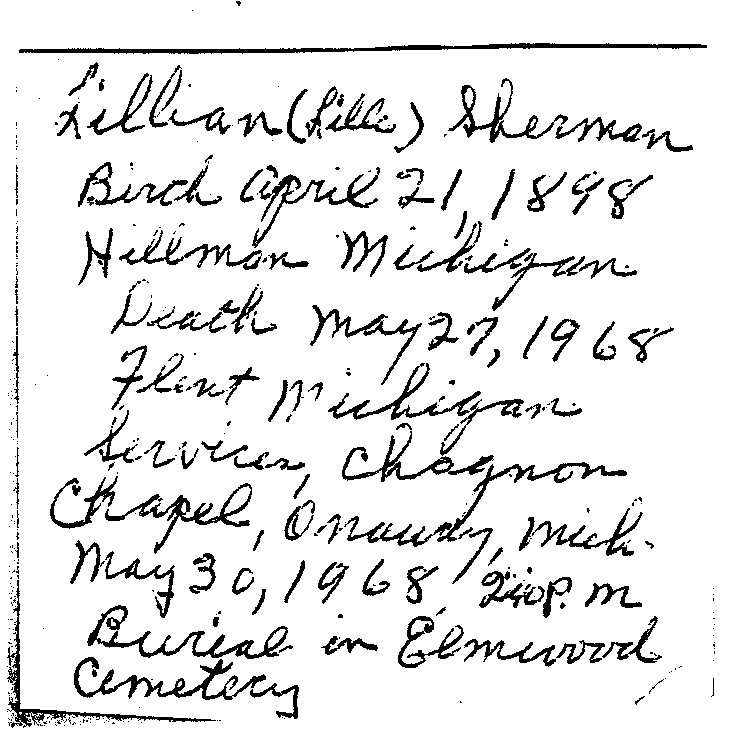 Lillian (Lille) Sherman
Birch April 21, 1898
Hillman Michigan
Death May 27, 1968
Flint Michigan
Services, Chagnon
Chapel, Onaway, Mich.
May 30, 1968 2:00 P.M
Burial in Elmwood
Cemetery